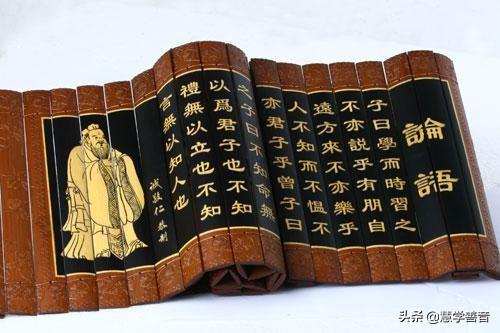 論語
子曰學而時習之
不亦說乎有朋自
遠方來不亦樂乎
人不知而不愠不
亦君子乎曾子曰
之子曰不知命無
以爲君子也不知
禮無以立也不知
言無以知人也
誠敬仁
头条 @慧学善音